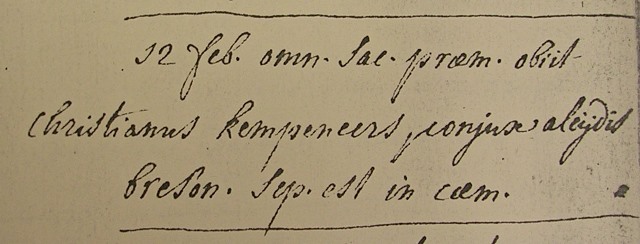 12 feb. omn. Sac. præm. obiit
christianus kempeneers, conjux aleijdis
breson. Sep. est in cæm.